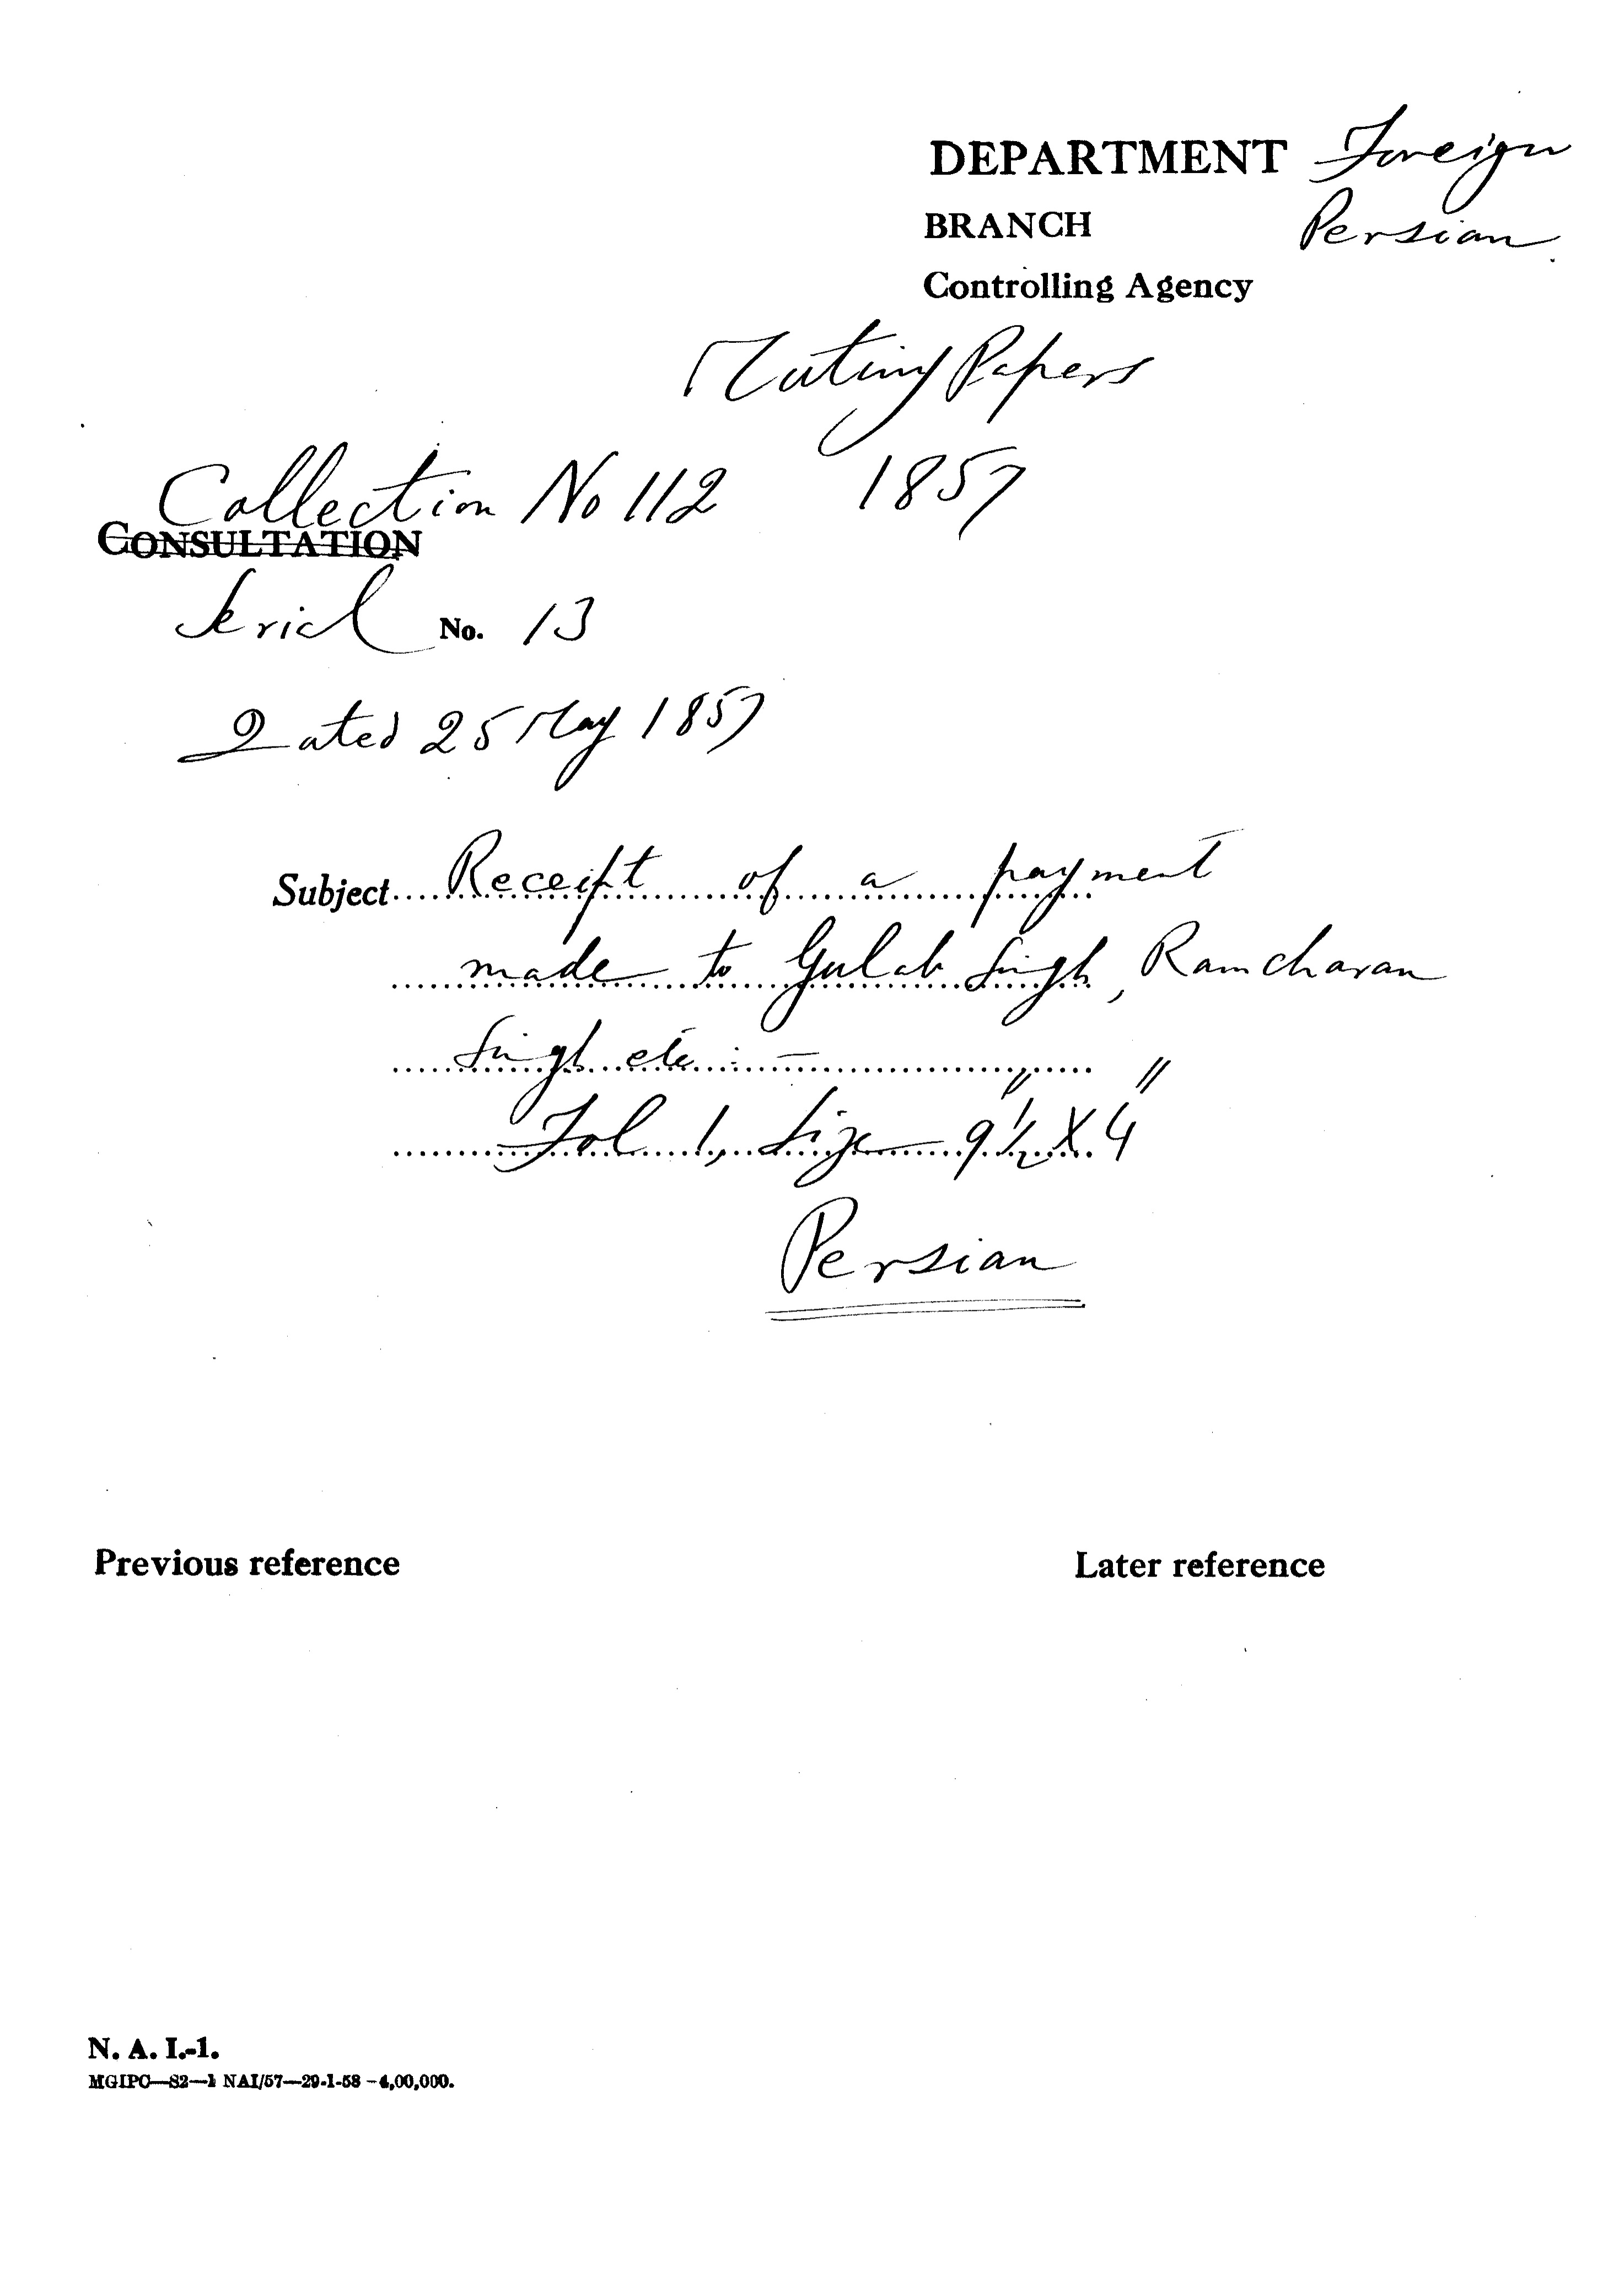 DEPARTMENT Foreign
BRANCH Persian
Controlling Agency
Mutiny Papers
Collection No 112 1857
CONSULTATION
Serial No. 13
Dated 25 May 1857
Subject Receipt of a payment
made to Gulab Singh, Ramcharan
Singh etc :—
Fol 1, Size 9½" X 4"
Persian
Previous reference Later reference
N. A. I.-1.
MGIPC—S2—1 NAI/57—29-1-58—4,00,000.